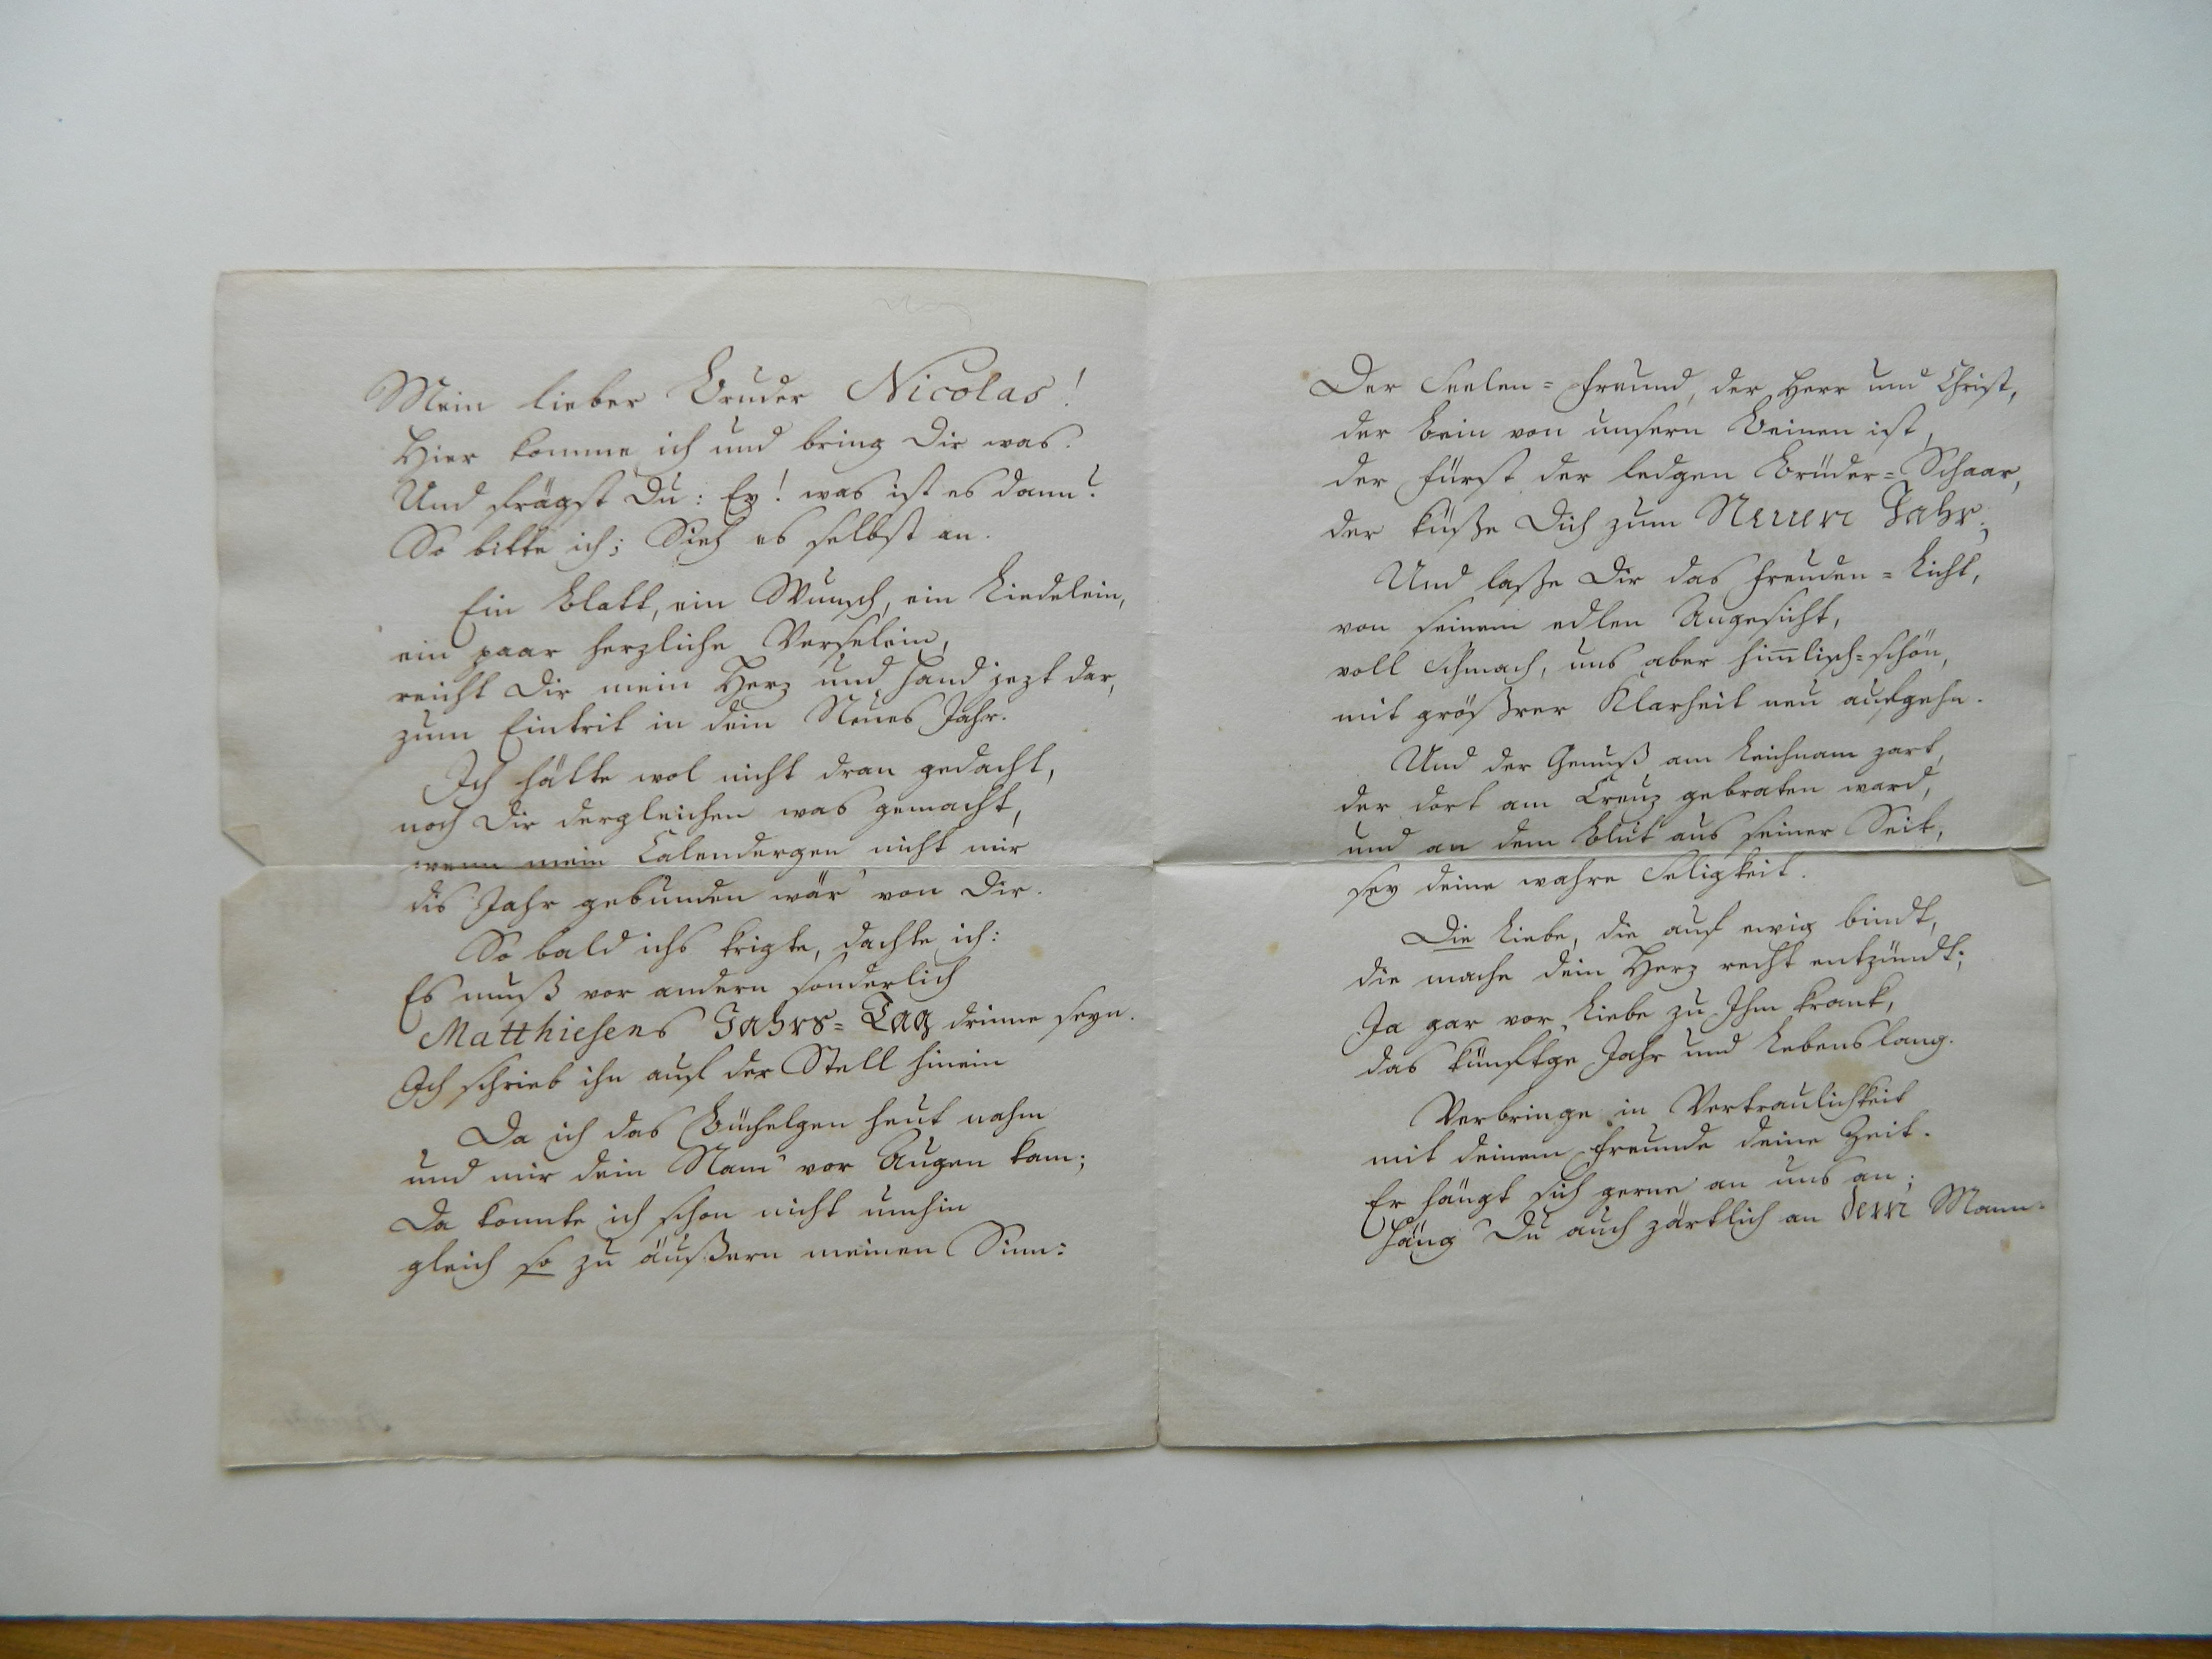 Mein lieber Bruder Nicolas!
Hier komme ich und bring Dir was.
Und frägst Du: Ey! was ist es dann?
So bitte ich: Sieh es selbst an.
Ein Blatt, ein Wunsch, ein Liedelein,
ein paar herzliche Verselein,
reicht Dir mein Herz und Hand jezt dar,
zum Eintrit in dein Neues Jahr.
Ich hätte wol nicht dran gedacht,
noch Dir dergleichen was gemacht,
wenn mein Calendergen nicht mir
dis Jahr gebunden wär von Dir.
So bald ichs krigte, dachte ich:
Es muß vor andern sonderlich
Matthiesens Jahrs=Tag drinne seyn.
Ich schrieb ihn auf der Stell hinein
Da ich das Büchelgen heut nahm
und mir dein Nam vor Augen kam;
Da konnte ich schon nicht umhin
gleich so zu äußern meinen Sinn:
Der Seelen=Freund, der Herr und Christ,
der Bein von unsern Beinen ist,
der Fürst der ledgen Brüder=Schaar,
der küße Dich zum Neuen Jahr;
Und laße Dir das Freuden=Licht,
von seinem edlen Angesicht,
voll Schmach, uns aber himlisch=schön,
mit größrer Klarheit neu aufgehn.
Und der Genuß am Leichnam zart,
der dort am Creuz gebraten ward,
und an dem Blut aus seiner Seit,
sey deine wahre Seligkeit.
Die Liebe, die auf ewig bindt,
die mache dein Herz recht entzündt;
Ja gar vor Liebe zu Ihm krank,
das künftge Jahr und Lebenslang.
Verbringe in Vertraulichkeit
mit deinem Freunde deine Zeit.
Er hängt sich gerne an uns an;
häng Du auch zärtlich an dem Mann.